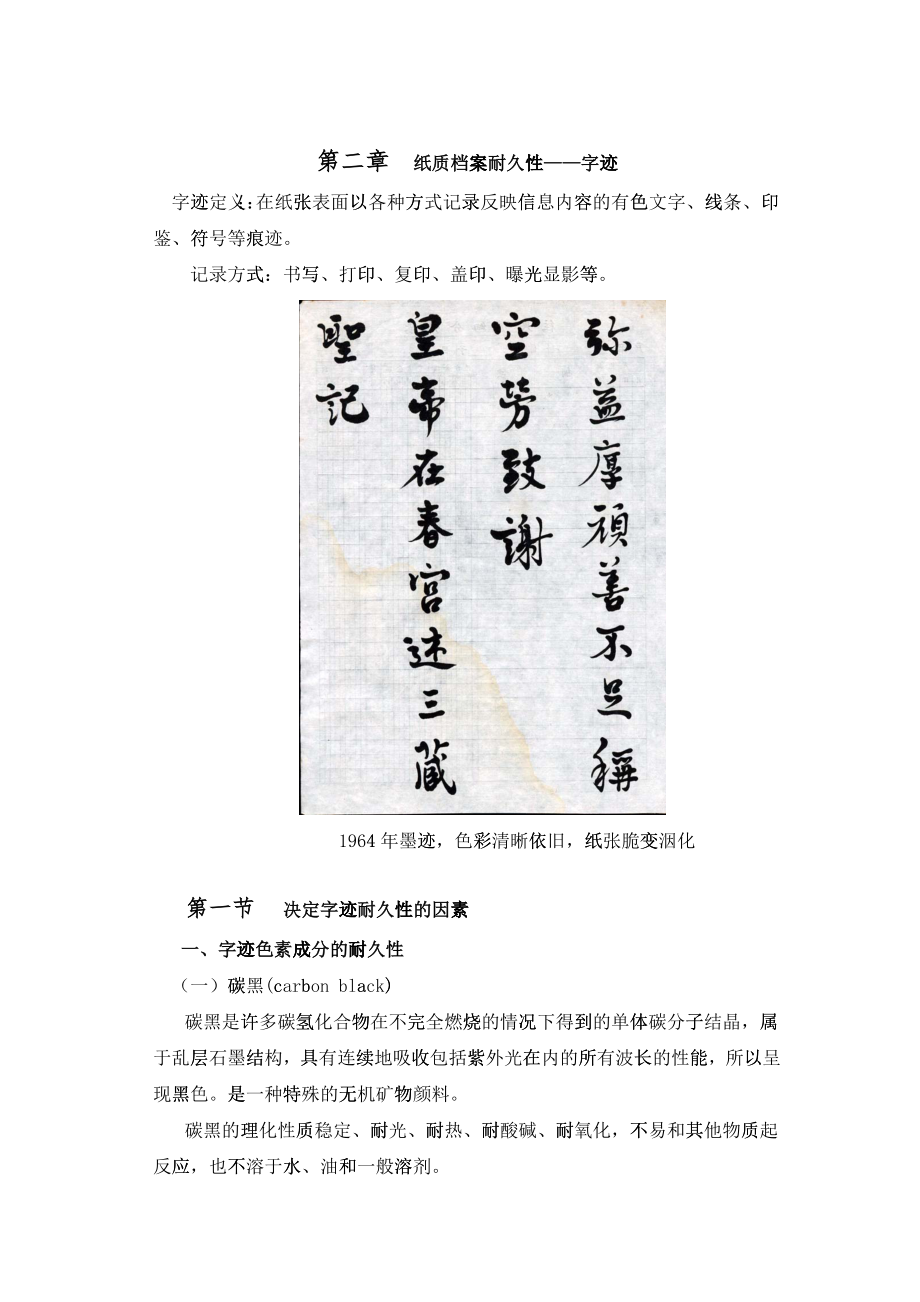 第二章 纸质档案耐久性——字迹
字迹定义：在纸张表面以各种方式记录反映信息内容的有色文字、线条、印
鉴、符号等痕迹。
记录方式：书写、打印、复印、盖印、曝光显影等。
弥益厚顽善不足稱
空劳致謝
皇帝在春宫述三藏
聖記
1964 年墨迹，色彩清晰依旧，纸张脆变洇化
第一节 决定字迹耐久性的因素
一、字迹色素成分的耐久性
（一）碳黑(carbon black)
碳黑是许多碳氢化合物在不完全燃烧的情况下得到的单体碳分子结晶，属
于乱层石墨结构，具有连续地吸收包括紫外光在内的所有波长的性能，所以呈
现黑色。是一种特殊的无机矿物颜料。
碳黑的理化性质稳定、耐光、耐热、耐酸碱、耐氧化，不易和其他物质起
反应，也不溶于水、油和一般溶剂。